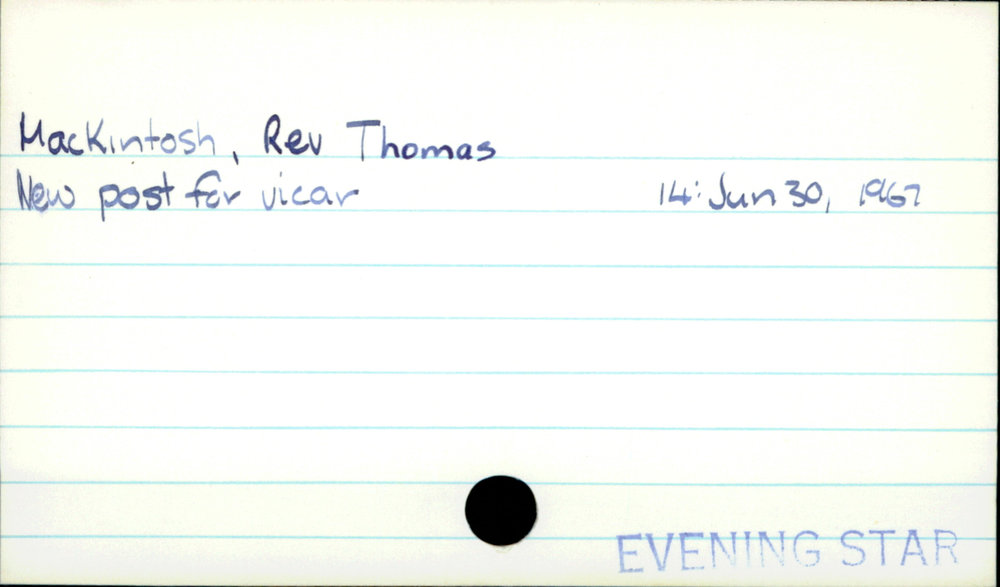 MacKintosh, Rev Thomas
New post for vicar 14: Jun 30, 1967
EVENING STAR